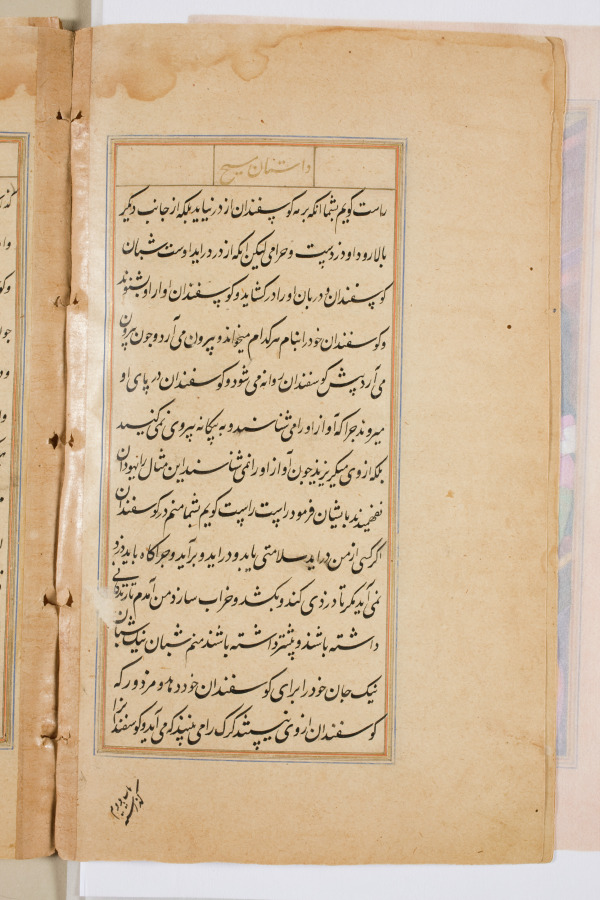 داستان مسیح
راست گویم بشما آنکه برمه گوسفندان از در نیاید بلکه از جانب دیکر
بالا رود او دزدست و حرامی لیکن آنکه از در دراید اوست شبان
گوسفندان و دربان او را در کشاید و گوسفندان آواز او بشنوند
و گوسفندان خود را بنام هر کدام میخواند و بیرون می آرد و چون بیرون
می آرد پیش گوسفندان روانه می شود و گوسفندان در پای او
میروند چرا که آواز او را می شناسند و به بیکانه پیروی نمی کنند
بلکه از وی میکریزند چون آواز او را نمی شناسند این مثال را یهودان
نفهمیدند بایشان فرمود راست راست گویم بشما منم در گوسفندان
اگر کسی از من دراید سلامتی یابد و دراید و برآید و چراکاه یابد دزد
نمی آید مکر تا دزدی کند و بکشد و خراب سازد من آمدم تا زندکانی
داشته باشند و بیشتر داشته باشند منم شبان نیک شبان
نیک جان خود را برای گوسفندان خود دهد و مزدور که
گوسفندان از وی نیستند کرک را می بیند که می آید و گوسفندانرا